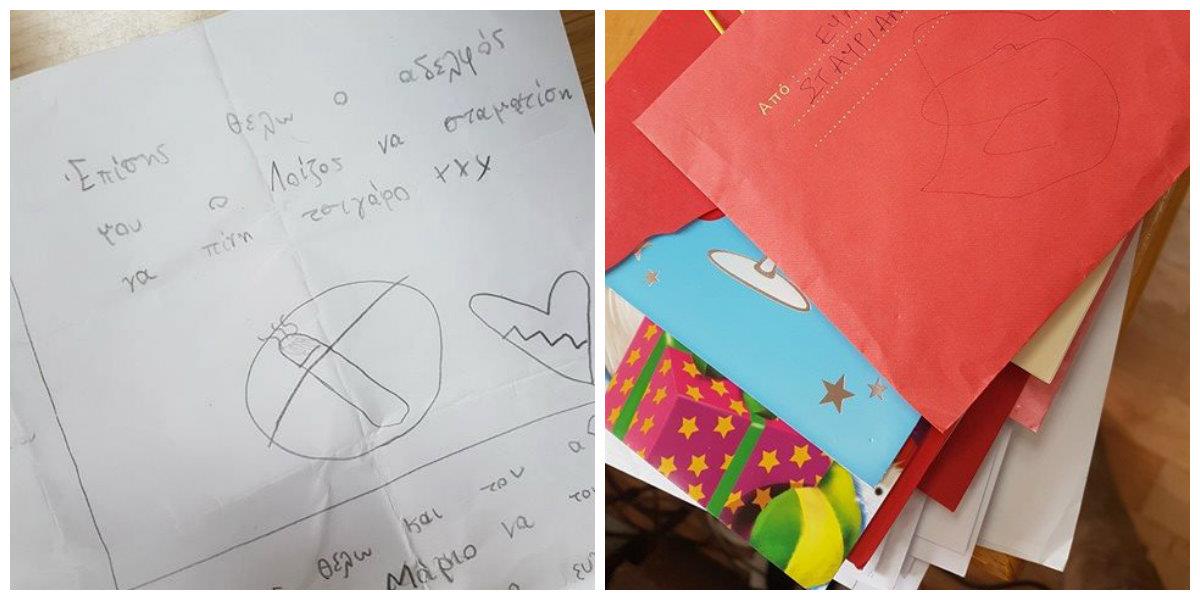 Επίσης θέλω ο αδελφός
μου ο Λοίζος να σταματίση
να πίνη τσιγάρο xxx
θέλω και τον
Μάριο να
Από
ΣΤΑΥΡΙΑΝ